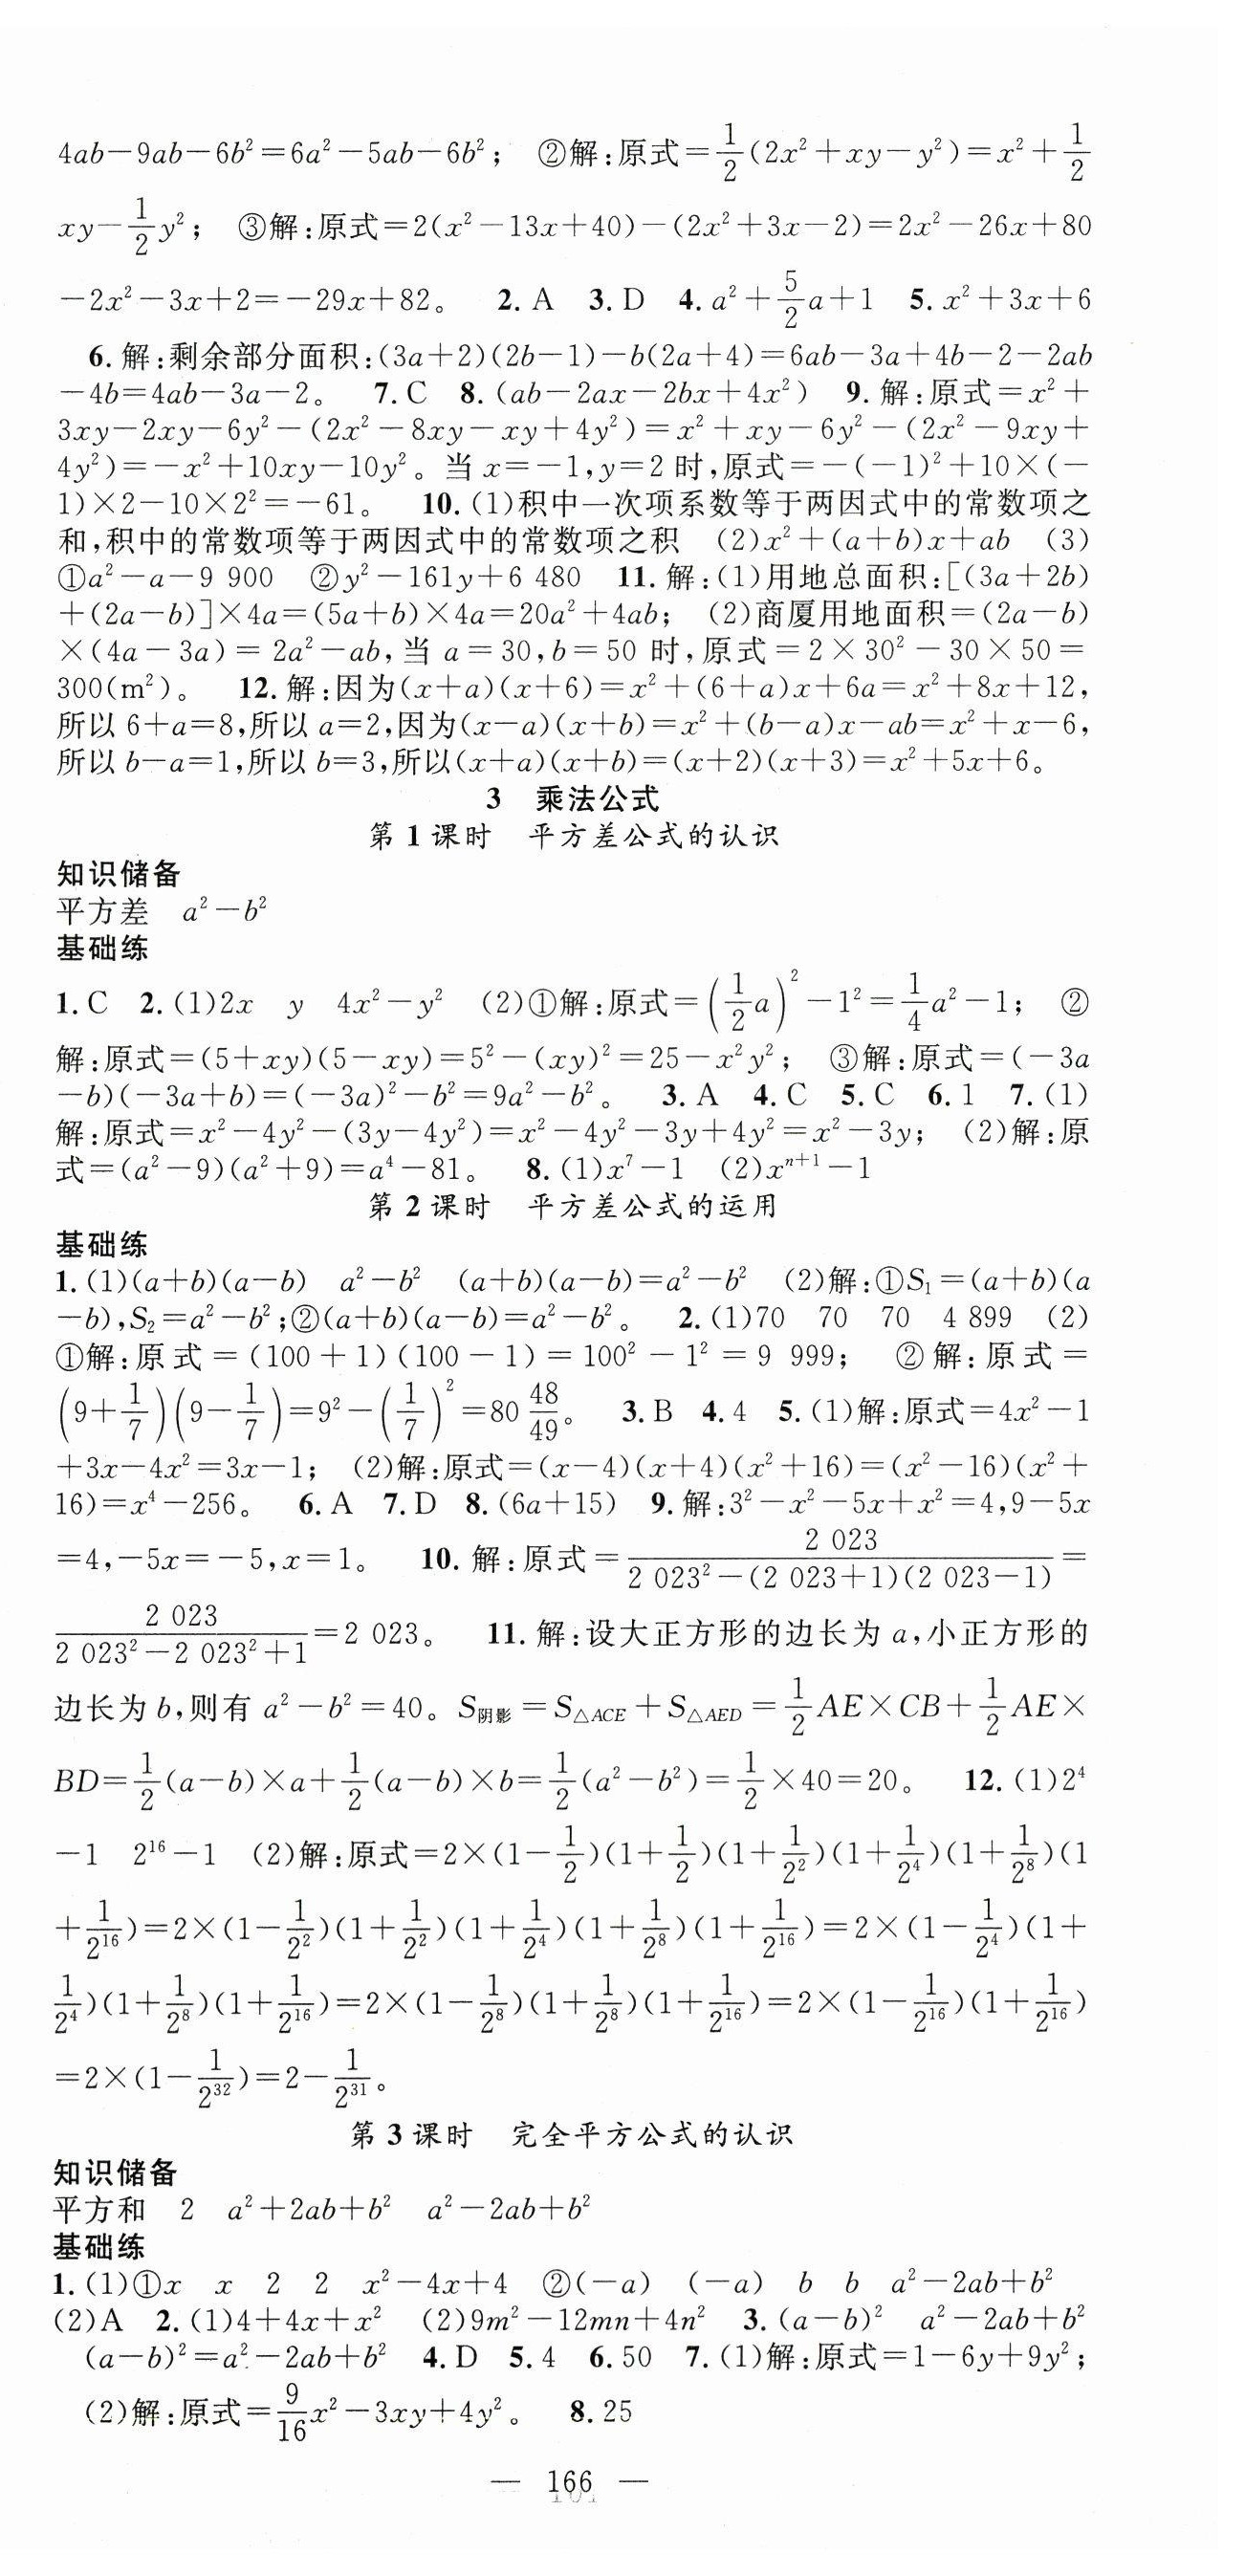 4ab－9ab－6b²＝6a²－5ab－6b²； ②解：原式＝1/2(2x²＋xy－y²)＝x²＋1/2
xy－1/2y²； ③解：原式＝2(x²－13x＋40)－(2x²＋3x－2)＝2x²－26x＋80
－2x²－3x＋2＝－29x＋82。 2. A 3. D 4. a²＋5/2a＋1 5. x²＋3x＋6
6. 解：剩余部分面积：(3a＋2)(2b－1)－b(2a＋4)＝6ab－3a＋4b－2－2ab
－4b＝4ab－3a－2。 7. C 8. (ab－2ax－2bx＋4x²) 9. 解：原式＝x²＋
3xy－2xy－6y²－(2x²－8xy－xy＋4y²)＝x²＋xy－6y²－(2x²－9xy＋
4y²)＝－x²＋10xy－10y²。当 x＝－1,y＝2 时,原式＝－(－1)²＋10×(－
1)×2－10×2²＝－61。 10. (1)积中一次项系数等于两因式中的常数项之
和,积中的常数项等于两因式中的常数项之积 (2)x²＋(a＋b)x＋ab (3)
①a²－a－9 900 ②y²－161y＋6 480 11. 解：(1)用地总面积：[(3a＋2b)
＋(2a－b)]×4a＝(5a＋b)×4a＝20a²＋4ab； (2)商厦用地面积＝(2a－b)
×(4a－3a)＝2a²－ab,当 a＝30,b＝50 时,原式＝2×30²－30×50＝
300(m²)。 12. 解：因为(x＋a)(x＋6)＝x²＋(6＋a)x＋6a＝x²＋8x＋12,
所以 6＋a＝8,所以 a＝2,因为(x－a)(x＋b)＝x²＋(b－a)x－ab＝x²＋x－6,
所以 b－a＝1,所以 b＝3,所以(x＋a)(x＋b)＝(x＋2)(x＋3)＝x²＋5x＋6。
3 乘法公式
第 1 课时 平方差公式的认识
知识储备
平方差 a²－b²
基础练
1. C 2. (1)2x y 4x²－y² (2)①解：原式＝(1/2a)²－1²＝1/4a²－1； ②
解：原式＝(5＋xy)(5－xy)＝5²－(xy)²＝25－x²y²； ③解：原式＝(－3a
－b)(－3a＋b)＝(－3a)²－b²＝9a²－b²。 3. A 4. C 5. C 6. 1 7. (1)
解：原式＝x²－4y²－(3y－4y²)＝x²－4y²－3y＋4y²＝x²－3y； (2)解：原
式＝(a²－9)(a²＋9)＝a⁴－81。 8. (1)x⁷－1 (2)xⁿ⁺¹－1
第 2 课时 平方差公式的运用
基础练
1. (1)(a＋b)(a－b) a²－b² (a＋b)(a－b)＝a²－b² (2)解：①S₁＝(a＋b)(a
－b),S₂＝a²－b²；②(a＋b)(a－b)＝a²－b²。 2. (1)70 70 70 4 899 (2)
①解：原式＝(100＋1)(100－1)＝100²－1²＝9 999； ②解：原式＝
(9＋1/7)(9－1/7)＝9²－(1/7)²＝80 48/49。 3. B 4. 4 5. (1)解：原式＝4x²－1
＋3x－4x²＝3x－1； (2)解：原式＝(x－4)(x＋4)(x²＋16)＝(x²－16)(x²＋
16)＝x⁴－256。 6. A 7. D 8. (6a＋15) 9. 解：3²－x²－5x＋x²＝4,9－5x
＝4,－5x＝－5,x＝1。 10. 解：原式＝2 023/(2 023²－(2 023＋1)(2 023－1))＝
2 023/(2 023²－2 023²＋1)＝2 023。 11. 解：设大正方形的边长为 a,小正方形的
边长为 b,则有 a²－b²＝40。S阴影＝S△ACE＋S△AED＝1/2AE×CB＋1/2AE×
BD＝1/2(a－b)×a＋1/2(a－b)×b＝1/2(a²－b²)＝1/2×40＝20。 12. (1)2⁴
－1 2¹⁶－1 (2)解：原式＝2×(1－1/2)(1＋1/2)(1＋1/2²)(1＋1/2⁴)(1＋1/2⁸)(1
＋1/2¹⁶)＝2×(1－1/2²)(1＋1/2²)(1＋1/2⁴)(1＋1/2⁸)(1＋1/2¹⁶)＝2×(1－1/2⁴)(1＋
1/2⁴)(1＋1/2⁸)(1＋1/2¹⁶)＝2×(1－1/2⁸)(1＋1/2⁸)(1＋1/2¹⁶)＝2×(1－1/2¹⁶)(1＋1/2¹⁶)
＝2×(1－1/2³²)＝2－1/2³¹。
第 3 课时 完全平方公式的认识
知识储备
平方和 2 a²＋2ab＋b² a²－2ab＋b²
基础练
1. (1)①x x 2 2 x²－4x＋4 ②(－a) (－a) b b a²－2ab＋b²
(2)A 2. (1)4＋4x＋x² (2)9m²－12mn＋4n² 3. (a－b)² a²－2ab＋b²
(a－b)²＝a²－2ab＋b² 4. D 5. 4 6. 50 7. (1)解：原式＝1－6y＋9y²；
(2)解：原式＝9/16x²－3xy＋4y²。 8. 25
— 166 —